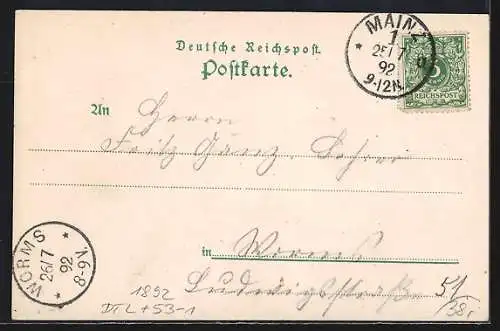 Deutsche Reichspost.
Postkarte.
MAINZ
1
25/7
92
9-12N.
5
REICHSPOST
An Herrn
Fritz Ganz, Lehrer
in Worms
Ludwigsstraße 51
WORMS
26/7
92
8-9V.
1892
38.